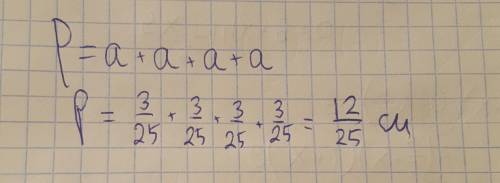 P = a + a + a + a
P = 3/25 + 3/25 + 3/25 + 3/25 = 12/25 см